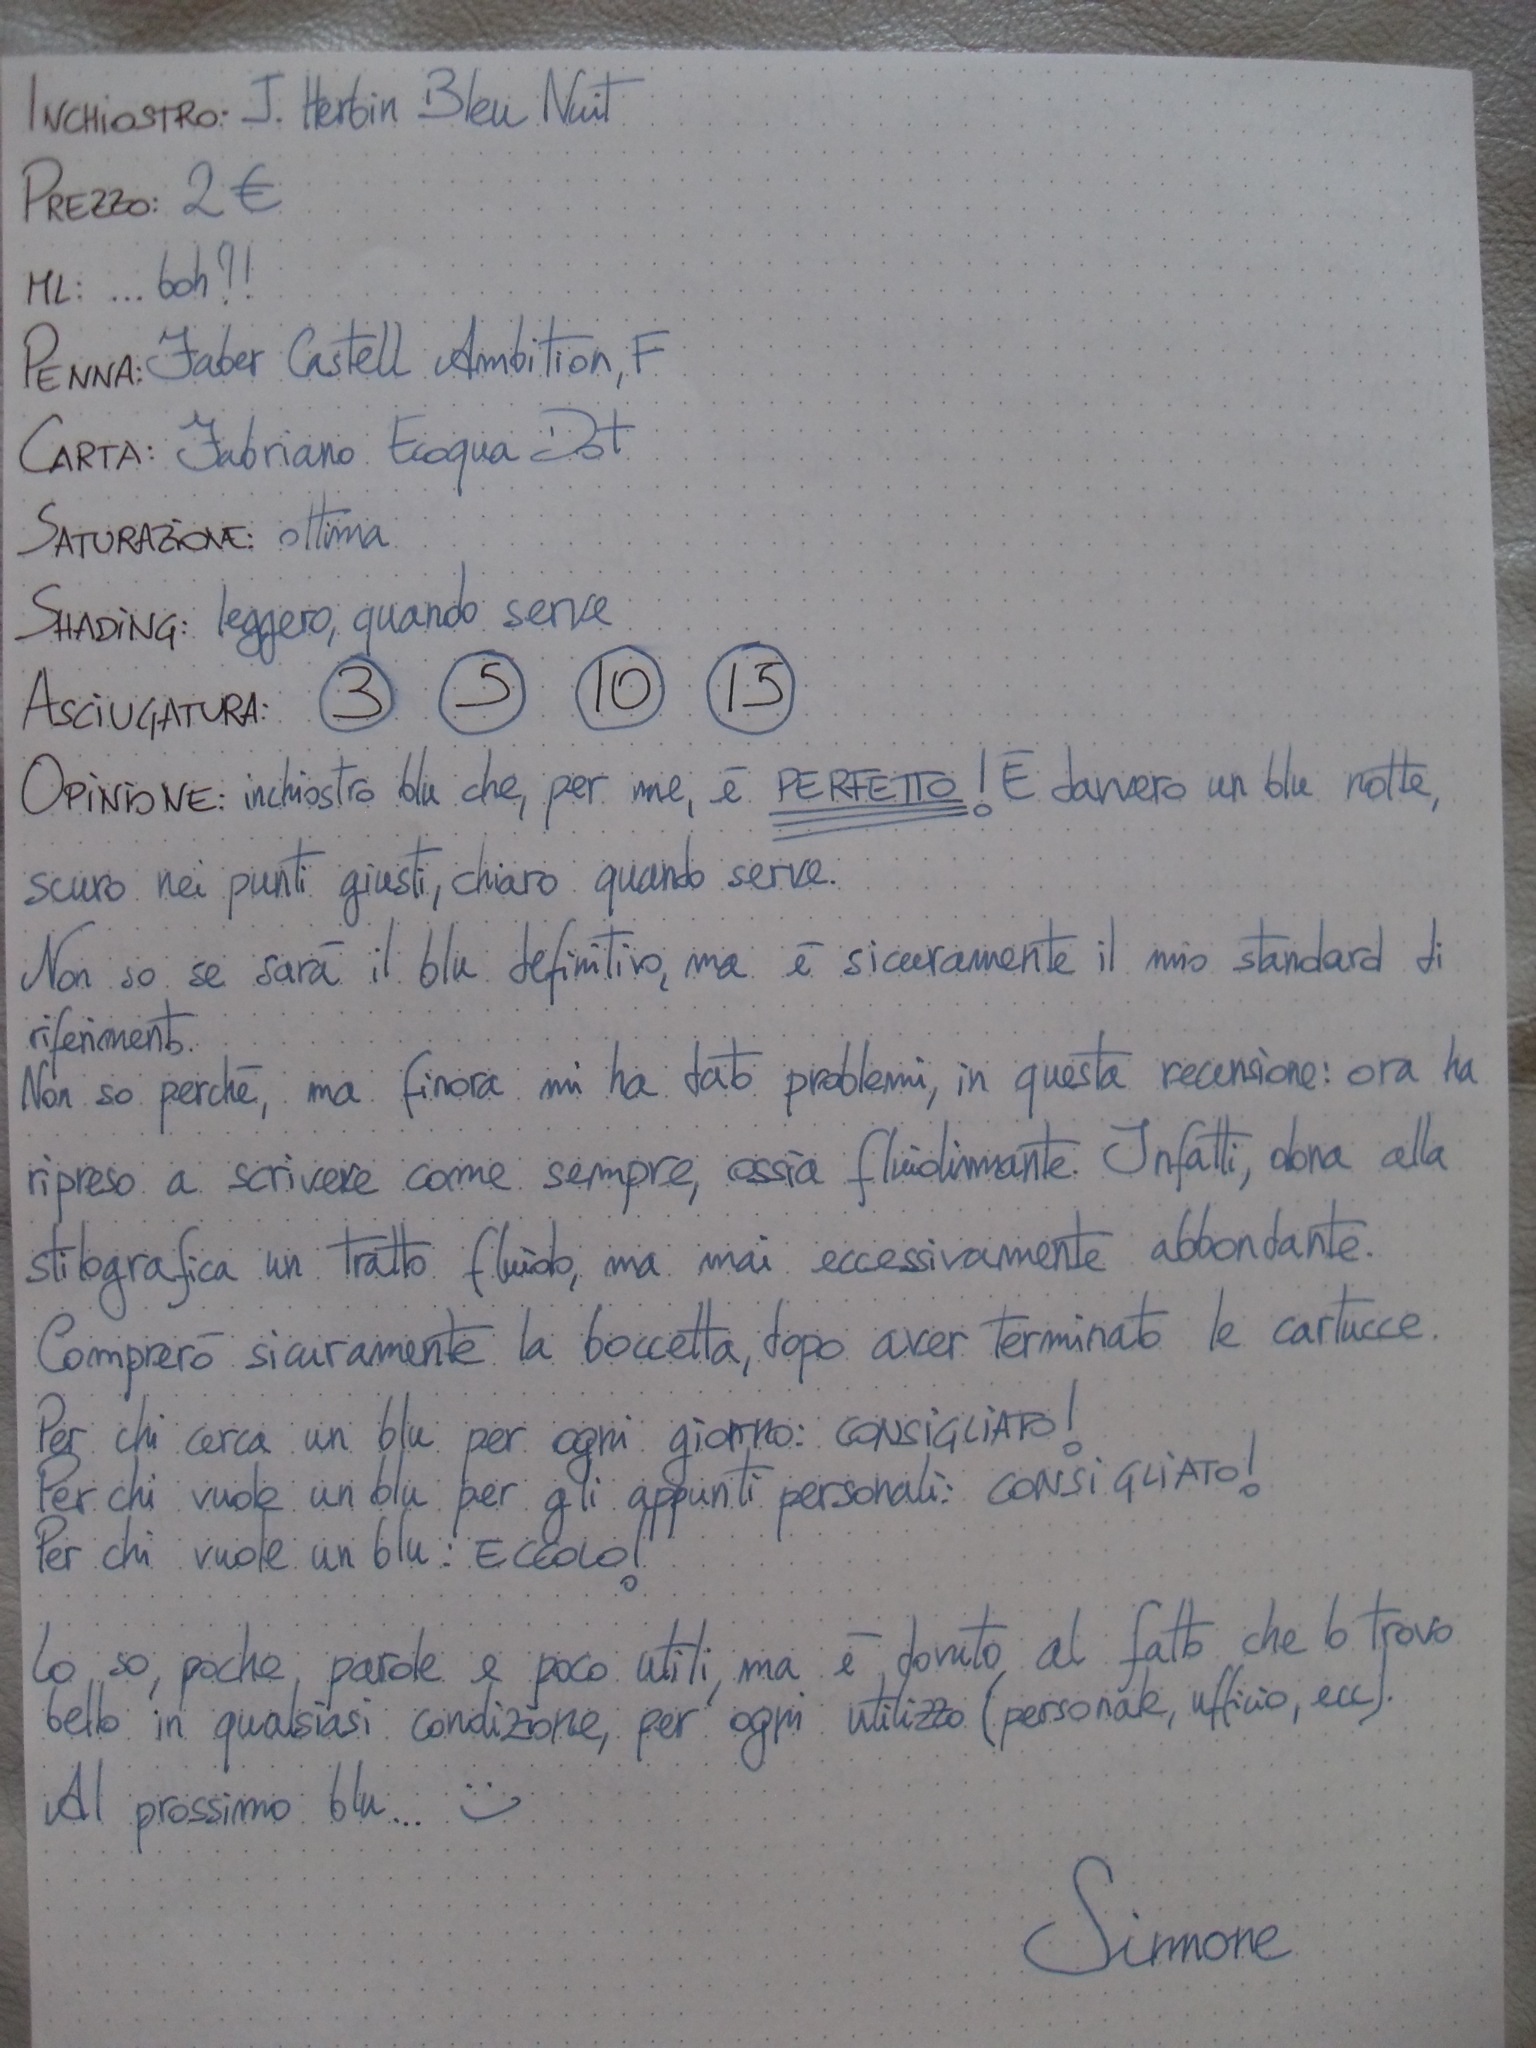 INCHIOSTRO: J. Herbin Bleu Nuit
PREZZO: 2 €
ML: ... boh?!
PENNA: Faber Castell Ambition, F
CARTA: Fabriano Ecoqua Dot
SATURAZIONE: ottima
SHADING: leggero, quando serve
ASCIUGATURA: 3 5 10 15
OPINIONE: inchiostro blu che, per me, è PERFETTO! È davvero un blu notte,
scuro nei punti giusti, chiaro quando serve.
Non so se sarà il blu definitivo, ma è sicuramente il mio standard di
riferimento.
Non so perché, ma finora mi ha dato problemi, in questa recensione: ora ha
ripreso a scrivere come sempre, ossia fluidimante. Infatti, dona alla
stilografica un tratto fluido, ma mai eccessivamente abbondante.
Comprerò sicuramente la boccetta, dopo aver terminato le cartucce.
Per chi cerca un blu per ogni giorno: CONSIGLIATO!
Per chi vuole un blu per gli appunti personali: CONSIGLIATO!
Per chi vuole un blu: ECCOLO!
Lo so, poche parole e poco utili, ma è dovuto al fatto che lo trovo
bello in qualsiasi condizione, per ogni utilizzo (personale, ufficio, ecc).
Al prossimo blu... :)
Simone